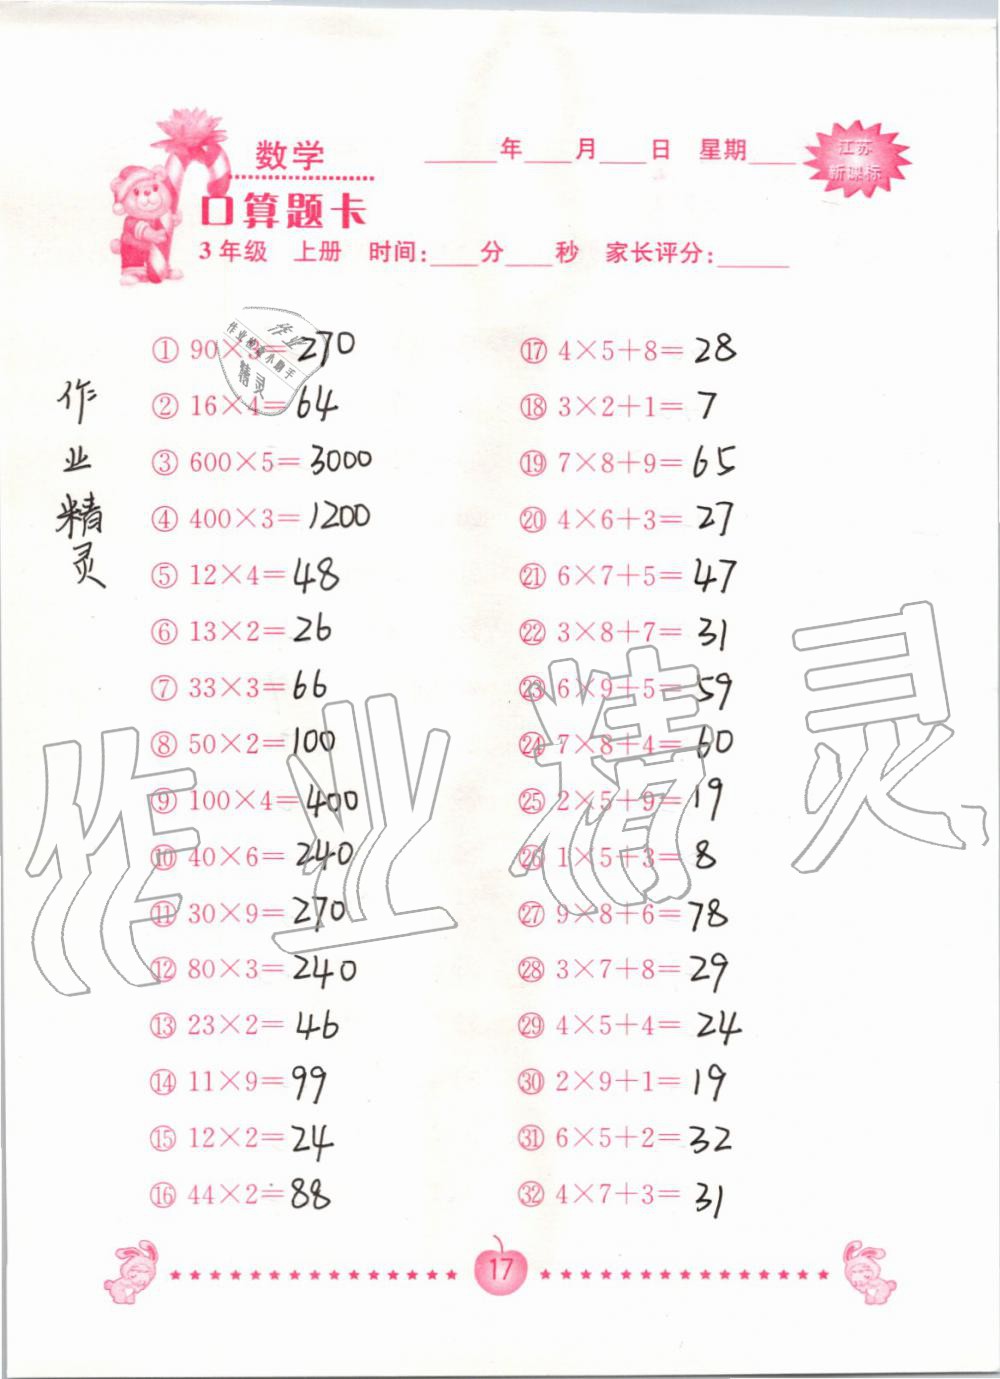 数学
____年____月____日 星期____
江苏
新课标
口算题卡
3年级 上册 时间:____分____秒 家长评分:______
作业精灵
作业
作业检查小助手
精灵
① 90×3=270
② 16×4=64
③ 600×5=3000
④ 400×3=1200
⑤ 12×4=48
⑥ 13×2=26
⑦ 33×3=66
⑧ 50×2=100
⑨ 100×4=400
⑩ 40×6=240
⑪ 30×9=270
⑫ 80×3=240
⑬ 23×2=46
⑭ 11×9=99
⑮ 12×2=24
⑯ 44×2=88
⑰ 4×5+8=28
⑱ 3×2+1=7
⑲ 7×8+9=65
⑳ 4×6+3=27
㉑ 6×7+5=47
㉒ 3×8+7=31
㉓ 6×9+5=59
㉔ 7×8+4=60
㉕ 2×5+9=19
㉖ 1×5+3=8
㉗ 9×8+6=78
㉘ 3×7+8=29
㉙ 4×5+4=24
㉚ 2×9+1=19
㉛ 6×5+2=32
㉜ 4×7+3=31
作业精灵
17